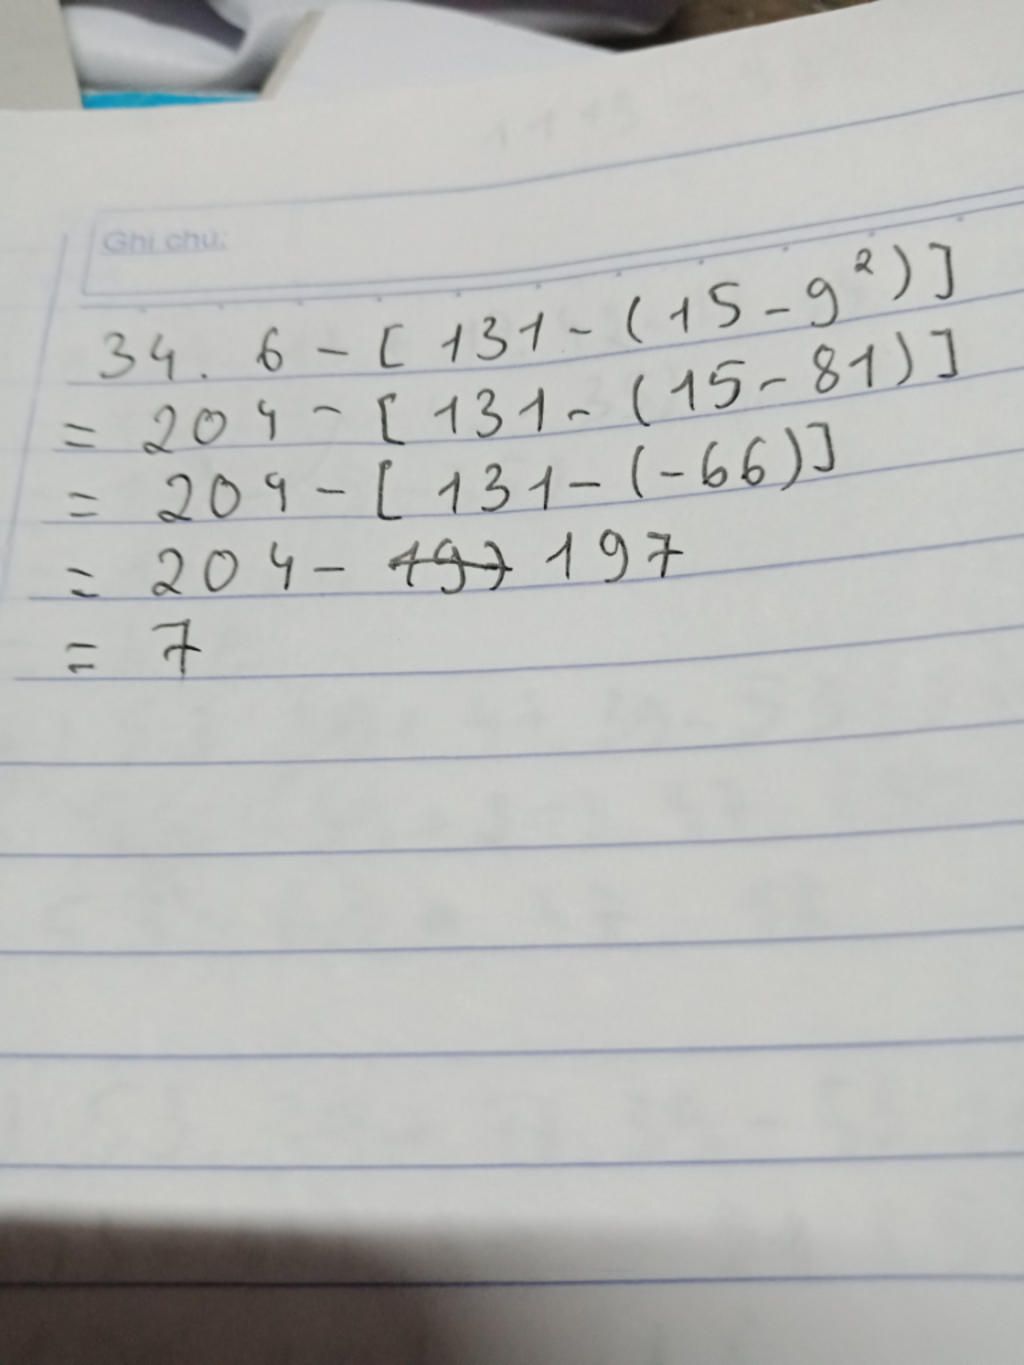 Ghi chú:
34. 6 - [ 131 - ( 15 - 9² ) ]
= 204 - [ 131 - ( 15 - 81 ) ]
= 204 - [ 131 - ( -66 ) ]
= 204 - 197 197
= 7